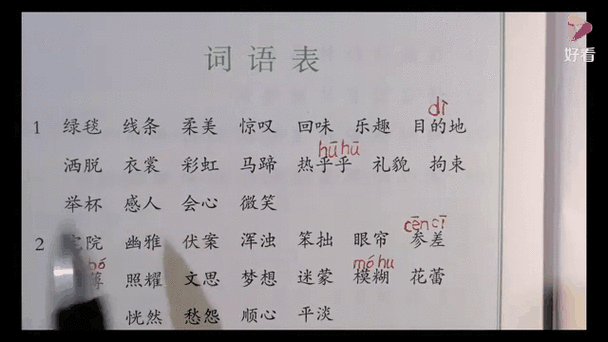 好看
词语表
dī
1 绿毯 线条 柔美 惊叹 回味 乐趣 目的地
hū hū
洒脱 衣裳 彩虹 马蹄 热乎乎 礼貌 拘束
举杯 感人 会心 微笑
cēn cī
2 院 幽雅 伏案 浑浊 笨拙 眼帘 参差
bó mó hu
薄 照耀 文思 梦想 迷蒙 模糊 花蕾
恍然 愁怨 顺心 平淡